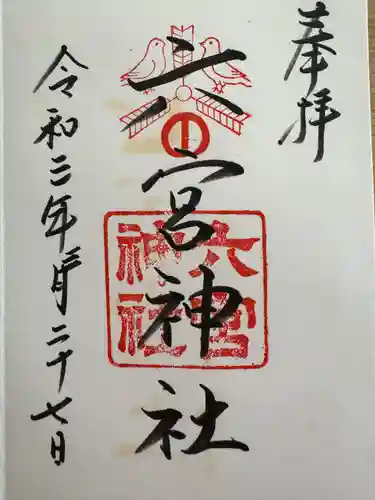 奉拝
六宮神社
六宮
神社
令和二年三月二十七日